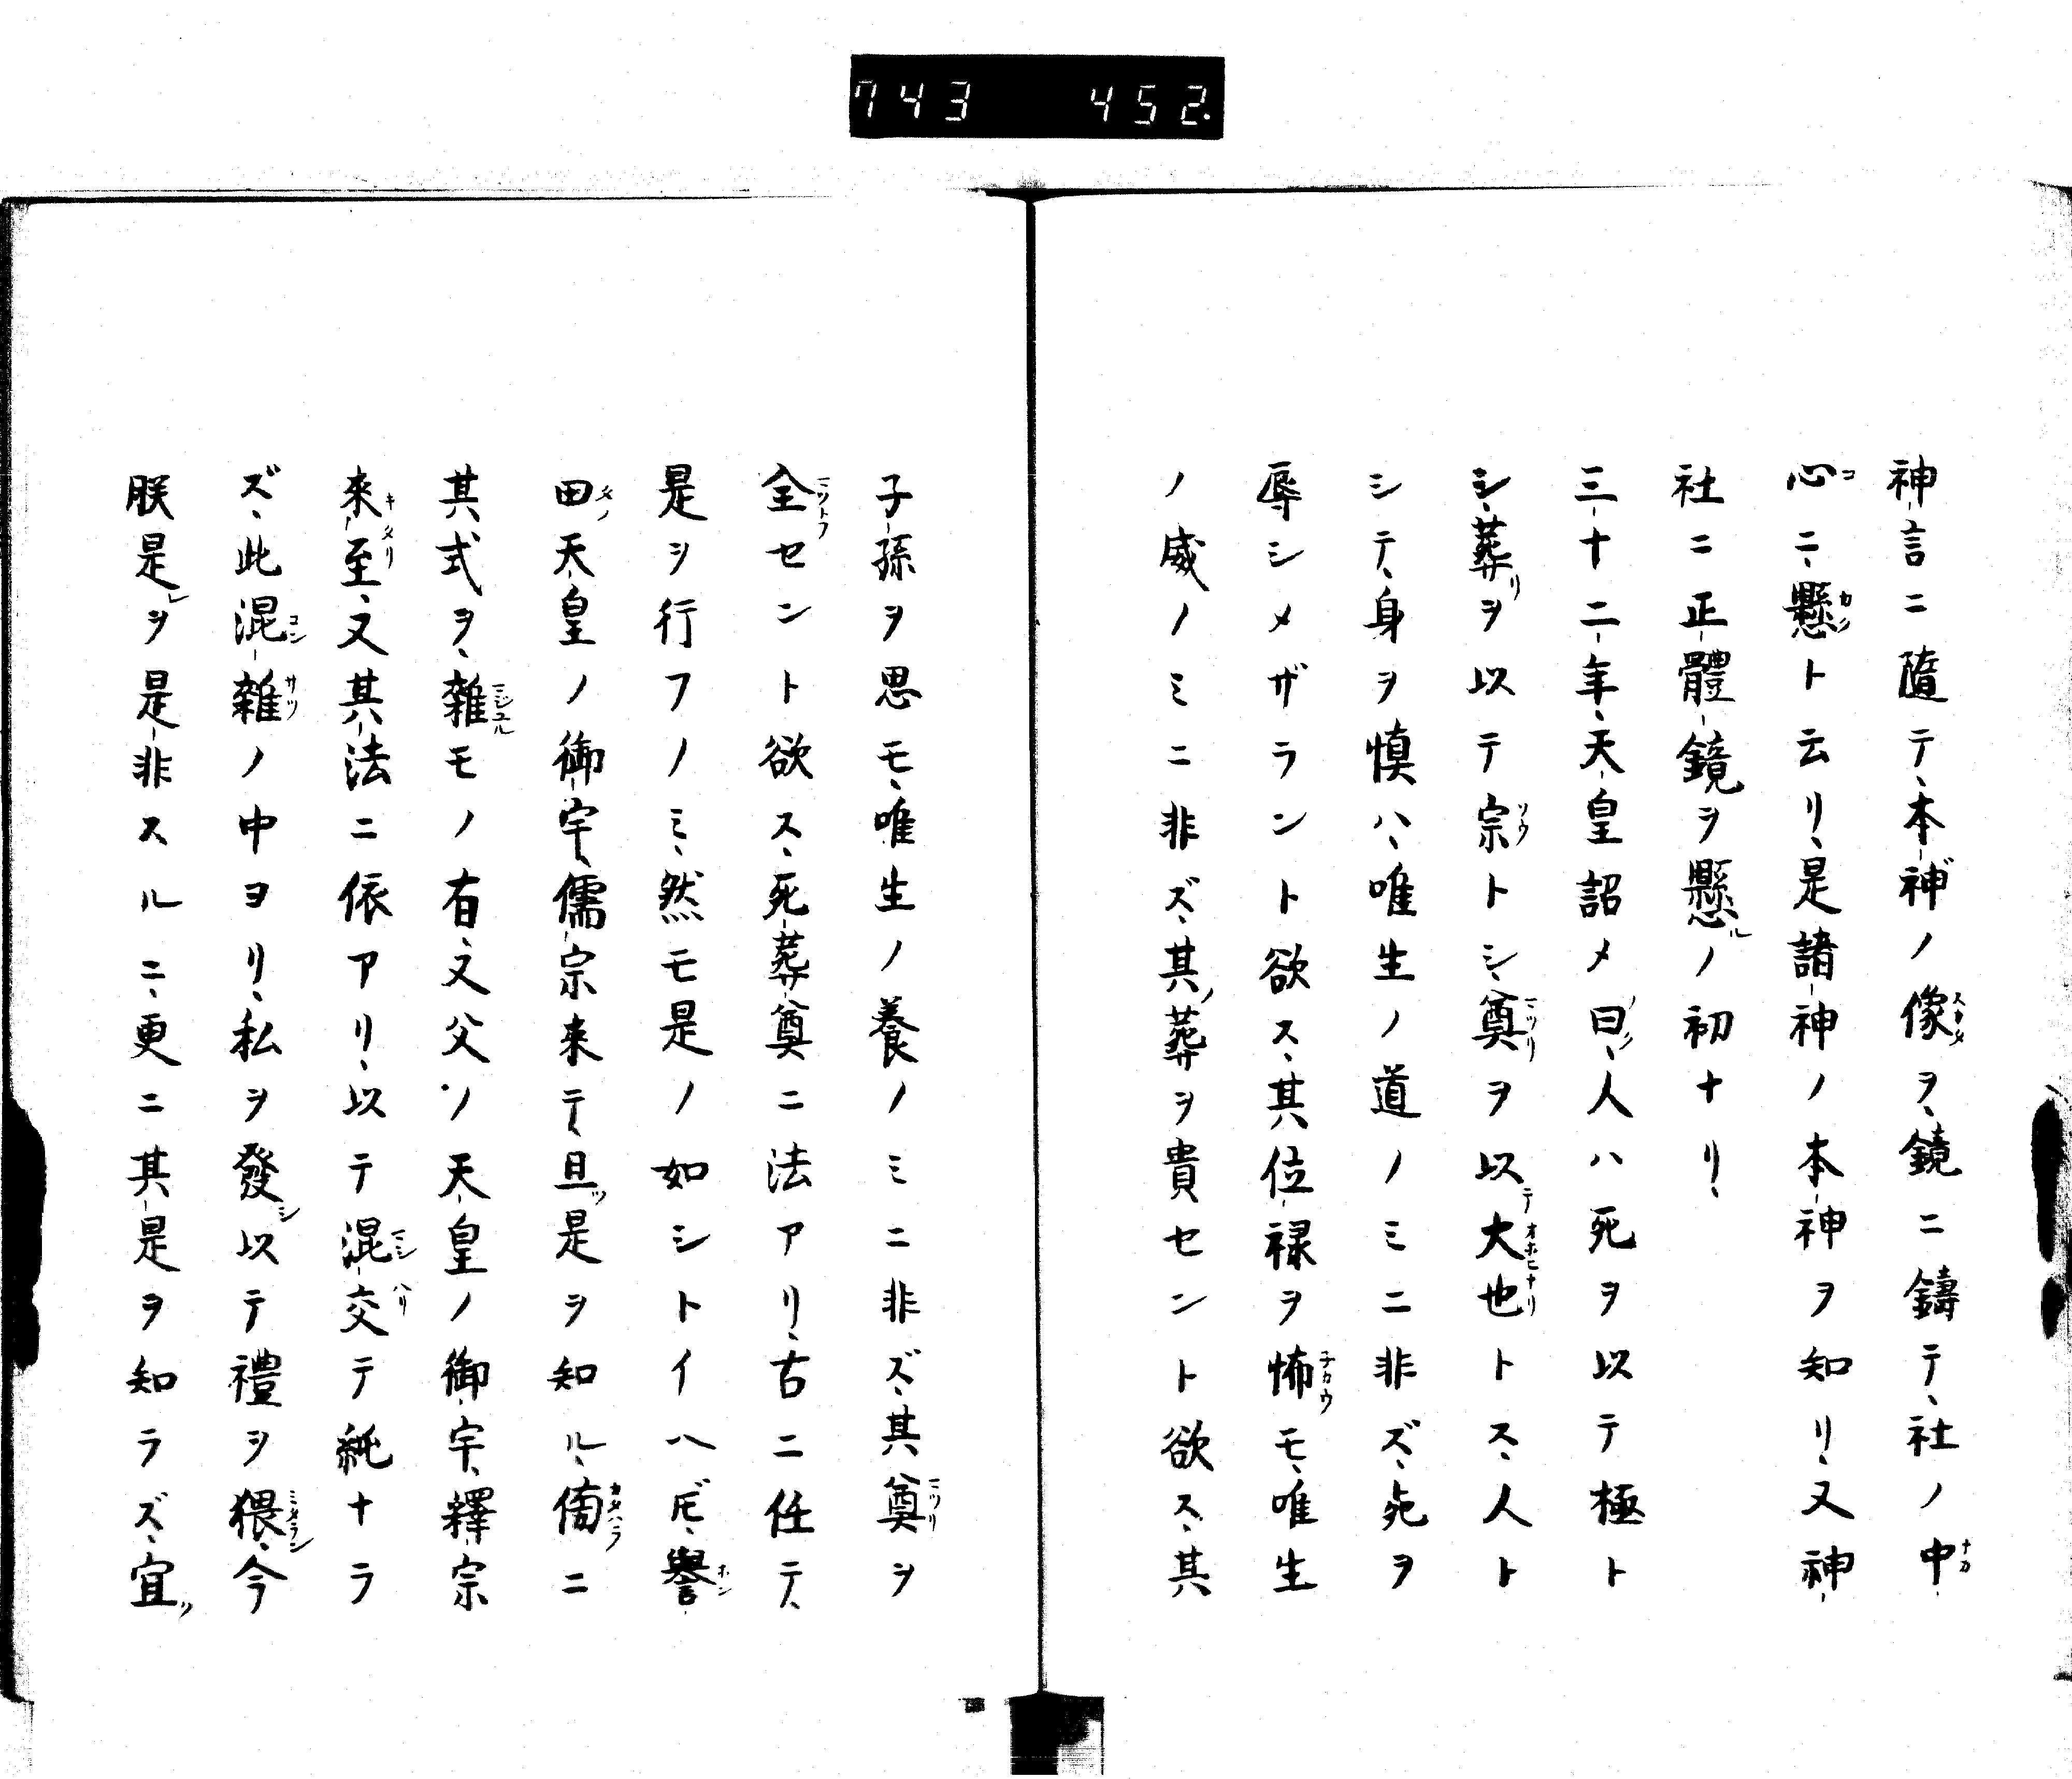 743 452.
神言ニ隨テ、本神ノ像ヲ、鏡ニ鑄テ、社ノ中
心ニ、懸ト云リ、是諸神ノ本神ヲ知リ、又神
社ニ正體鏡ヲ懸ルノ初ナリ、
三十二年、天皇詔メ曰、人ハ死ヲ以テ極ト
シ、葬リヲ以テ宗トシ、奠ヲ以テ大也トス、人ト
シテ、身ヲ慎ハ、唯生ノ道ノミニ非ズ、死ヲ
辱シメザラント欲ス、其位禄ヲ怖モ、唯生
ノ威ノミニ非ズ、其ノ葬ヲ貴セント欲ス、其
子孫ヲ思モ、唯生ノ養ノミニ非ズ、其奠ヲ
全セント欲ス、死葬奠ニ法アリ、古ニ任テ、
是ヲ行フノミ、然モ是ノ如シトイヘ𪜈、譽
田天皇ノ御宇、儒宗来テ、且ツ是ヲ知ル、傍ニ
其式ヲ、雜モノ有、又父ノ天皇ノ御宇、釋宗
來至、又其法ニ依アリ、以テ混交テ純ナラ
ズ、此混雜ノ中ヨリ、私ヲ發シ以テ禮ヲ猥、今
朕是レヲ是非スルニ、更ニ其是ヲ知ラズ、宜ク